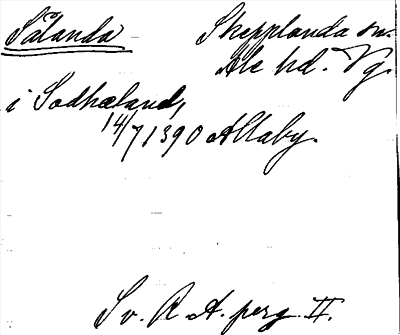 Sålanda
Skepplanda sn.
Ale hd. Vg.
i Sodhæland,
14/7 1390 Allaby.
Sv. R. A. perg. II.